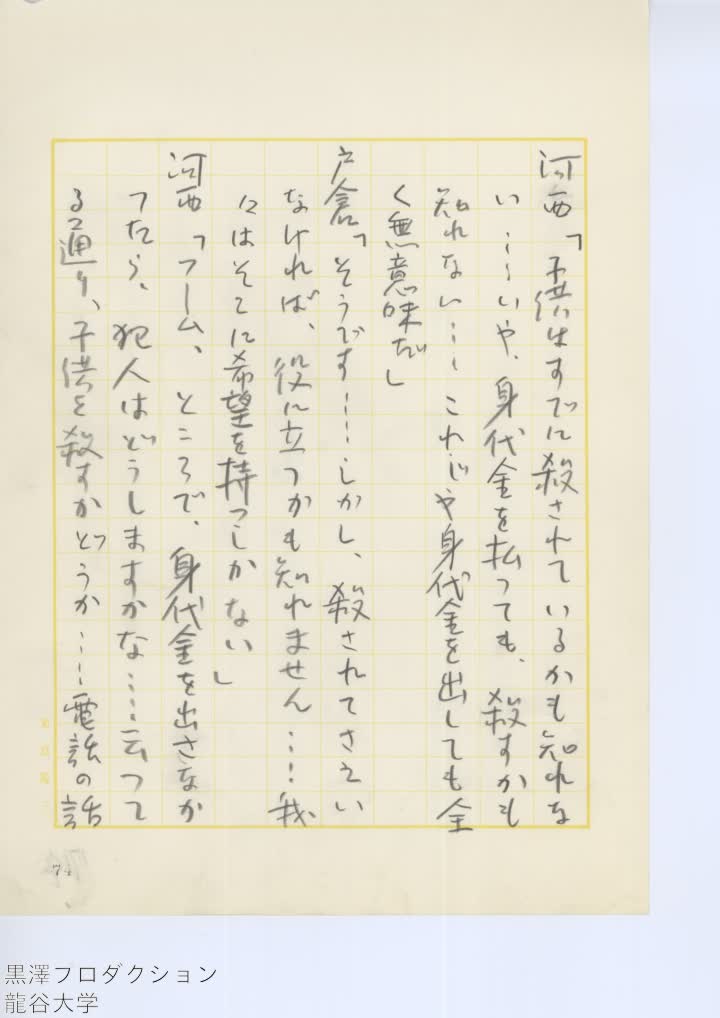 河西「子供はすでに殺されているかも知れな
い……いや、身代金を払っても、殺すかも
知れない……これじや身代金を出しても全
く無意味だ」
戸倉「そうです……しかし、殺されてさえい
なければ、役に立つかも知れません……我々
にはそこに希望を持つしかない」
河西「フーム、ところで、身代金を出さなか
つたら、犯人はどうしますかな……云つて
る通り、子供を殺すかどうか……電話の話
74
黒澤プロダクション
龍谷大学